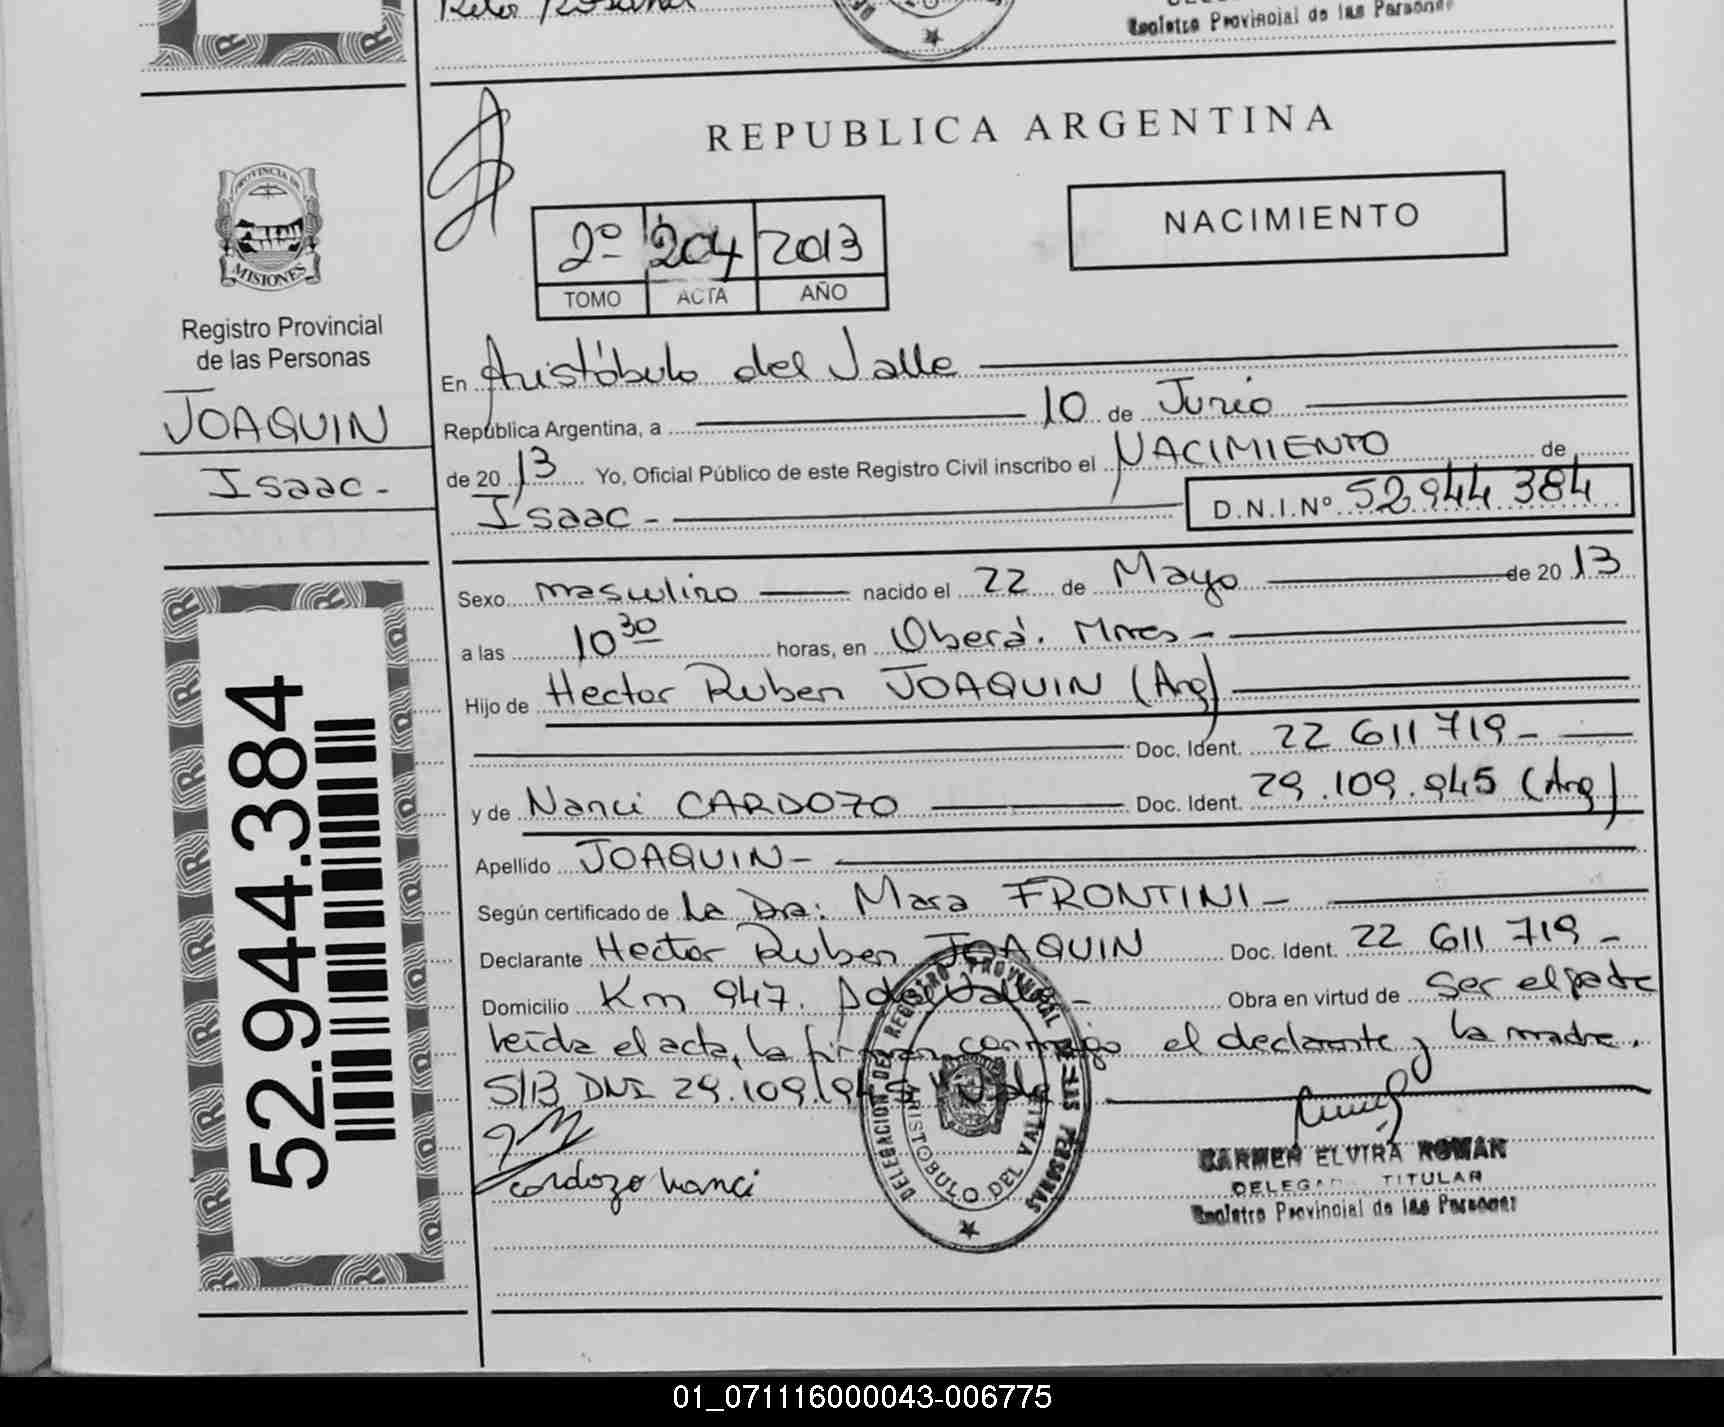 Registro Provincial de las Personas
REPUBLICA ARGENTINA
PROVINCIA DE
MISIONES
Registro Provincial
de las Personas
JOAQUIN
Isaac -
52.944.384
2º 204 2013
TOMO ACTA AÑO
NACIMIENTO
En Aristóbulo del Valle
República Argentina, a 10 de Junio
de 2013 Yo, Oficial Público de este Registro Civil inscribo el NACIMIENTO de
Isaac - D.N.I.Nº 52.944.384
Sexo masculino nacido el 22 de Mayo de 2013
a las 10 30 horas, en Oberá. Mnes -
Hijo de Hector Ruben JOAQUIN (Arg)
Doc. Ident. 22 611 719 -
y de Nanci CARDOZO Doc. Ident. 29.109.945 (Arg)
Apellido JOAQUIN -
Según certificado de La Dra: Mara FRONTINI -
Declarante Hector Ruben JOAQUIN Doc. Ident. 22 611 719 -
Domicilio Km 947. A del Valle - Obra en virtud de ser el padre
leída el acta, la firman conmigo el declarante y la madre.
S/B DNI 29.109.945 Vale
Cardozo Nanci
DELEGACION DEL REGISTRO PROVINCIAL DE LAS PERSONAS
ARISTOBULO DEL VALLE
CARMEN ELVIRA ROMAN
DELEGADA TITULAR
Registro Provincial de las Personas
01_071116000043-006775